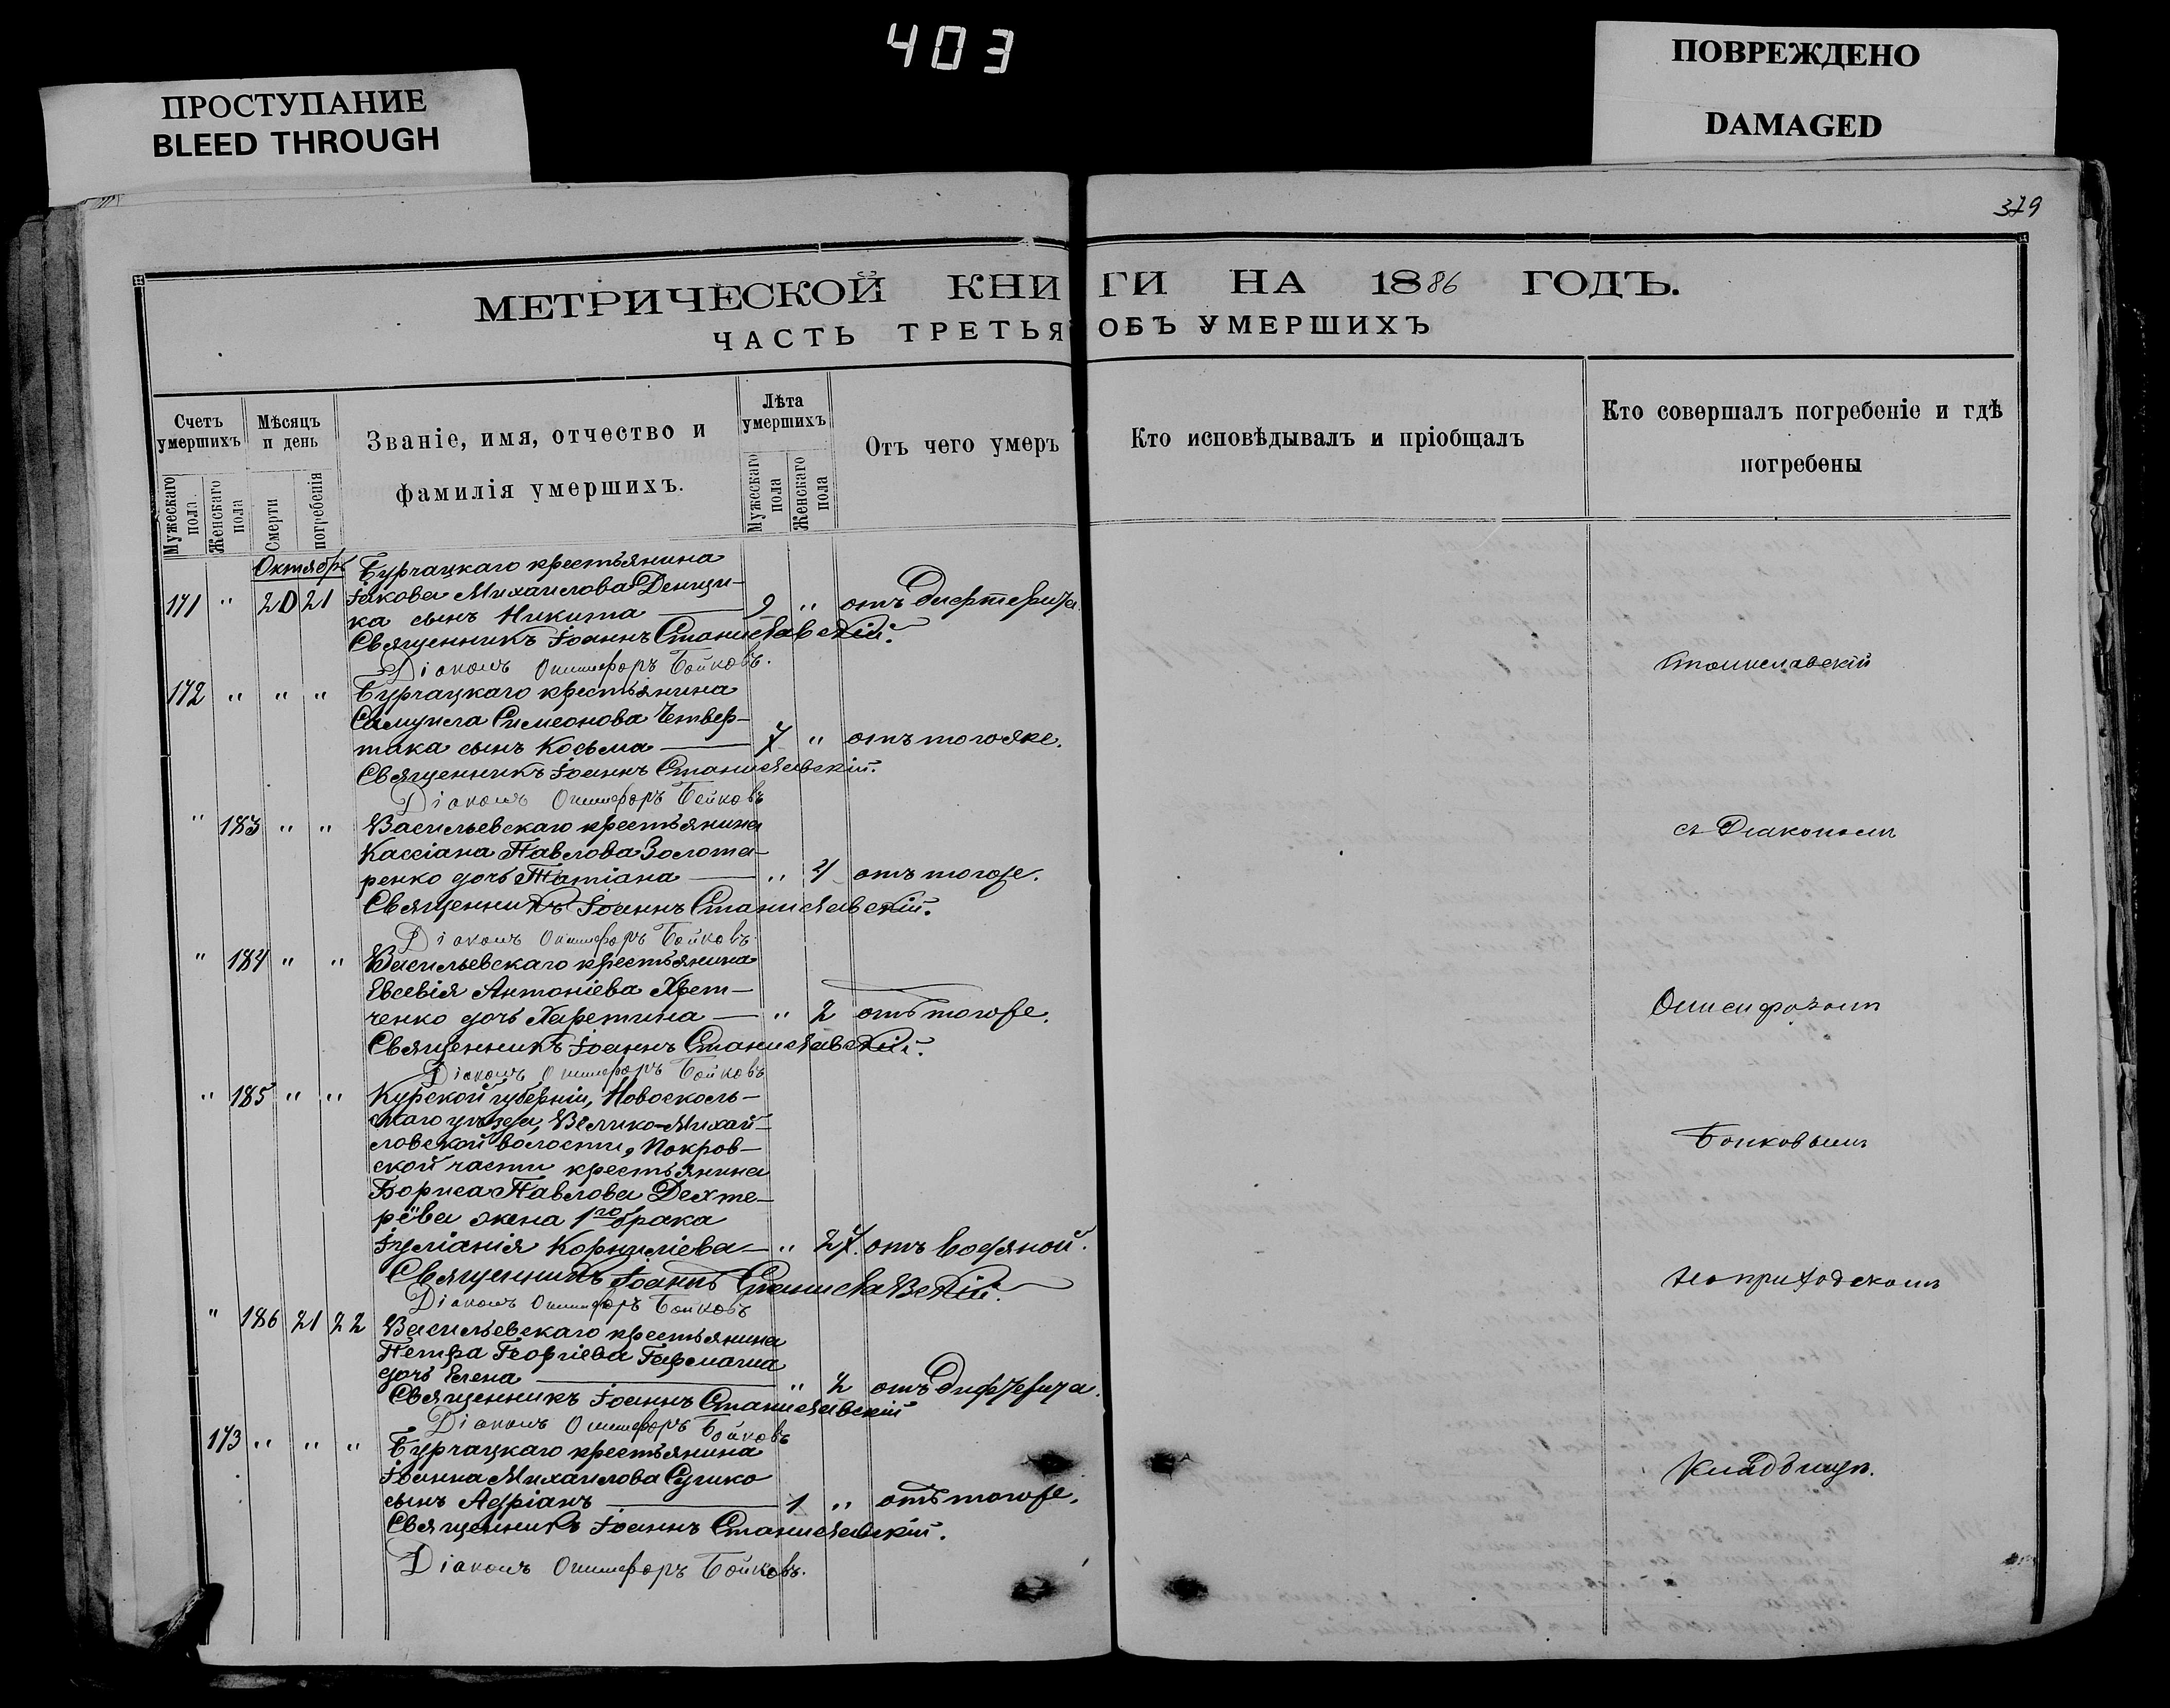 403
ПРОСТУПАНИЕ
BLEED THROUGH
ПОВРЕЖДЕНО
DAMAGED
379
МЕТРИЧЕСКОЙ КНИГИ НА 1886 ГОДЪ.
ЧАСТЬ ТРЕТЬЯ ОБЪ УМЕРШИХЪ
Счетъ умершихъ
Мужескаго пола
Женскаго пола
Мѣсяцъ и день
Смерти
погребенія
Званіе, имя, отчество и
фамилія умершихъ.
Лѣта умершихъ
Мужескаго пола
Женскаго пола
Отъ чего умеръ
Кто исповѣдывалъ и пріобщалъ
Кто совершалъ погребеніе и гдѣ
погребены
Октябрь
Бурчацкаго крестьянина
171 " 20 21 Іакова Михаилова Денщи-
ка сынъ Никита — 9 " отъ дифтерита.
Священникъ Іоаннъ Станиславскій.
Діаконъ Онисифоръ Бойковъ.
172 " " " Бурчацкаго крестьянина
Самуила Симеонова Четвер-
така сынъ Косьма — 7 " отъ того же.
Священникъ Іоаннъ Станиславскій.
Діаконъ Онисифоръ Бойковъ
" 183 " " Васильевскаго крестьянина
Кассіана Павлова Золота-
ренко дочь Татіана — " 4 отъ тогоже.
Священникъ Іоаннъ Станиславскій.
Діаконъ Онисифоръ Бойковъ.
" 184 " " Васильевскаго крестьянина
Евсевія Антоніева
ченко дочь Харитина — " 2 отъ тогоже.
Священникъ Іоаннъ Станиславскій.
Діаконъ Онисифоръ Бойковъ
" 185 " " Курской губерніи, Новосколь-
скаго уѣзда, Велико-Михай-
ловской волости, Покров-
ской части крестьянина
Бориса Павлова Дехте-
рёва жена 1го брака
Іуліанія Корниліева — " 27. отъ водяной.
Священникъ Іоаннъ Станиславскій.
Діаконъ Онисифоръ Бойковъ
" 186 21 22 Васильевскаго крестьянина
Петра Георгіева
дочь Елена — " 2 отъ дифтерита.
Священникъ Іоаннъ Станиславскій
Діаконъ Онисифоръ Бойковъ
173 " " " Бурчацкаго крестьянина
Іоанна Михаилова
сынъ Адріанъ — 1 " отъ тогоже.
Священникъ Іоаннъ Станиславскій.
Діаконъ Онисифоръ Бойковъ.
Станиславскій
съ Діакономъ
Онисифоромъ
Бойковымъ
на приходскомъ
кладбищѣ.